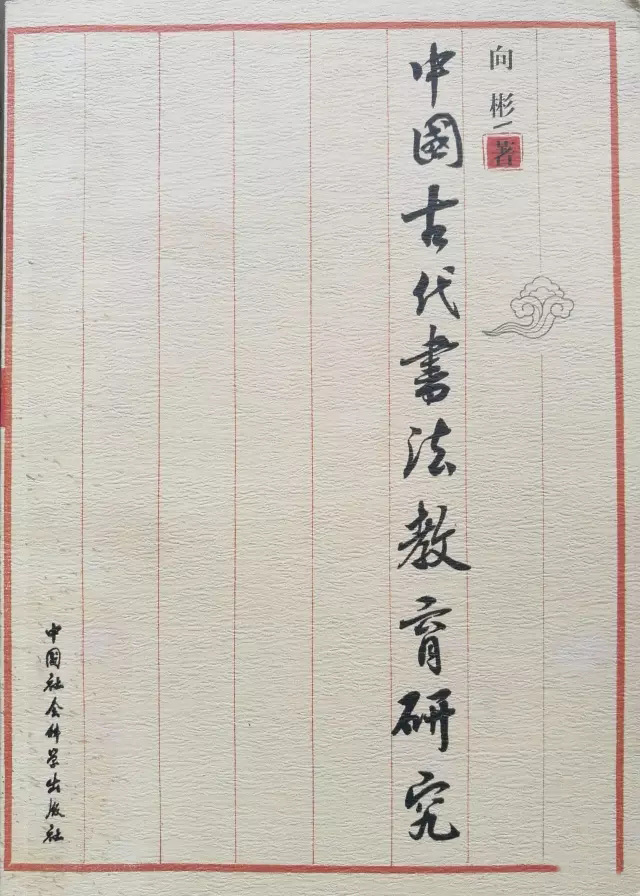 向彬 著
中國古代書法教育研究
中国社会科学出版社